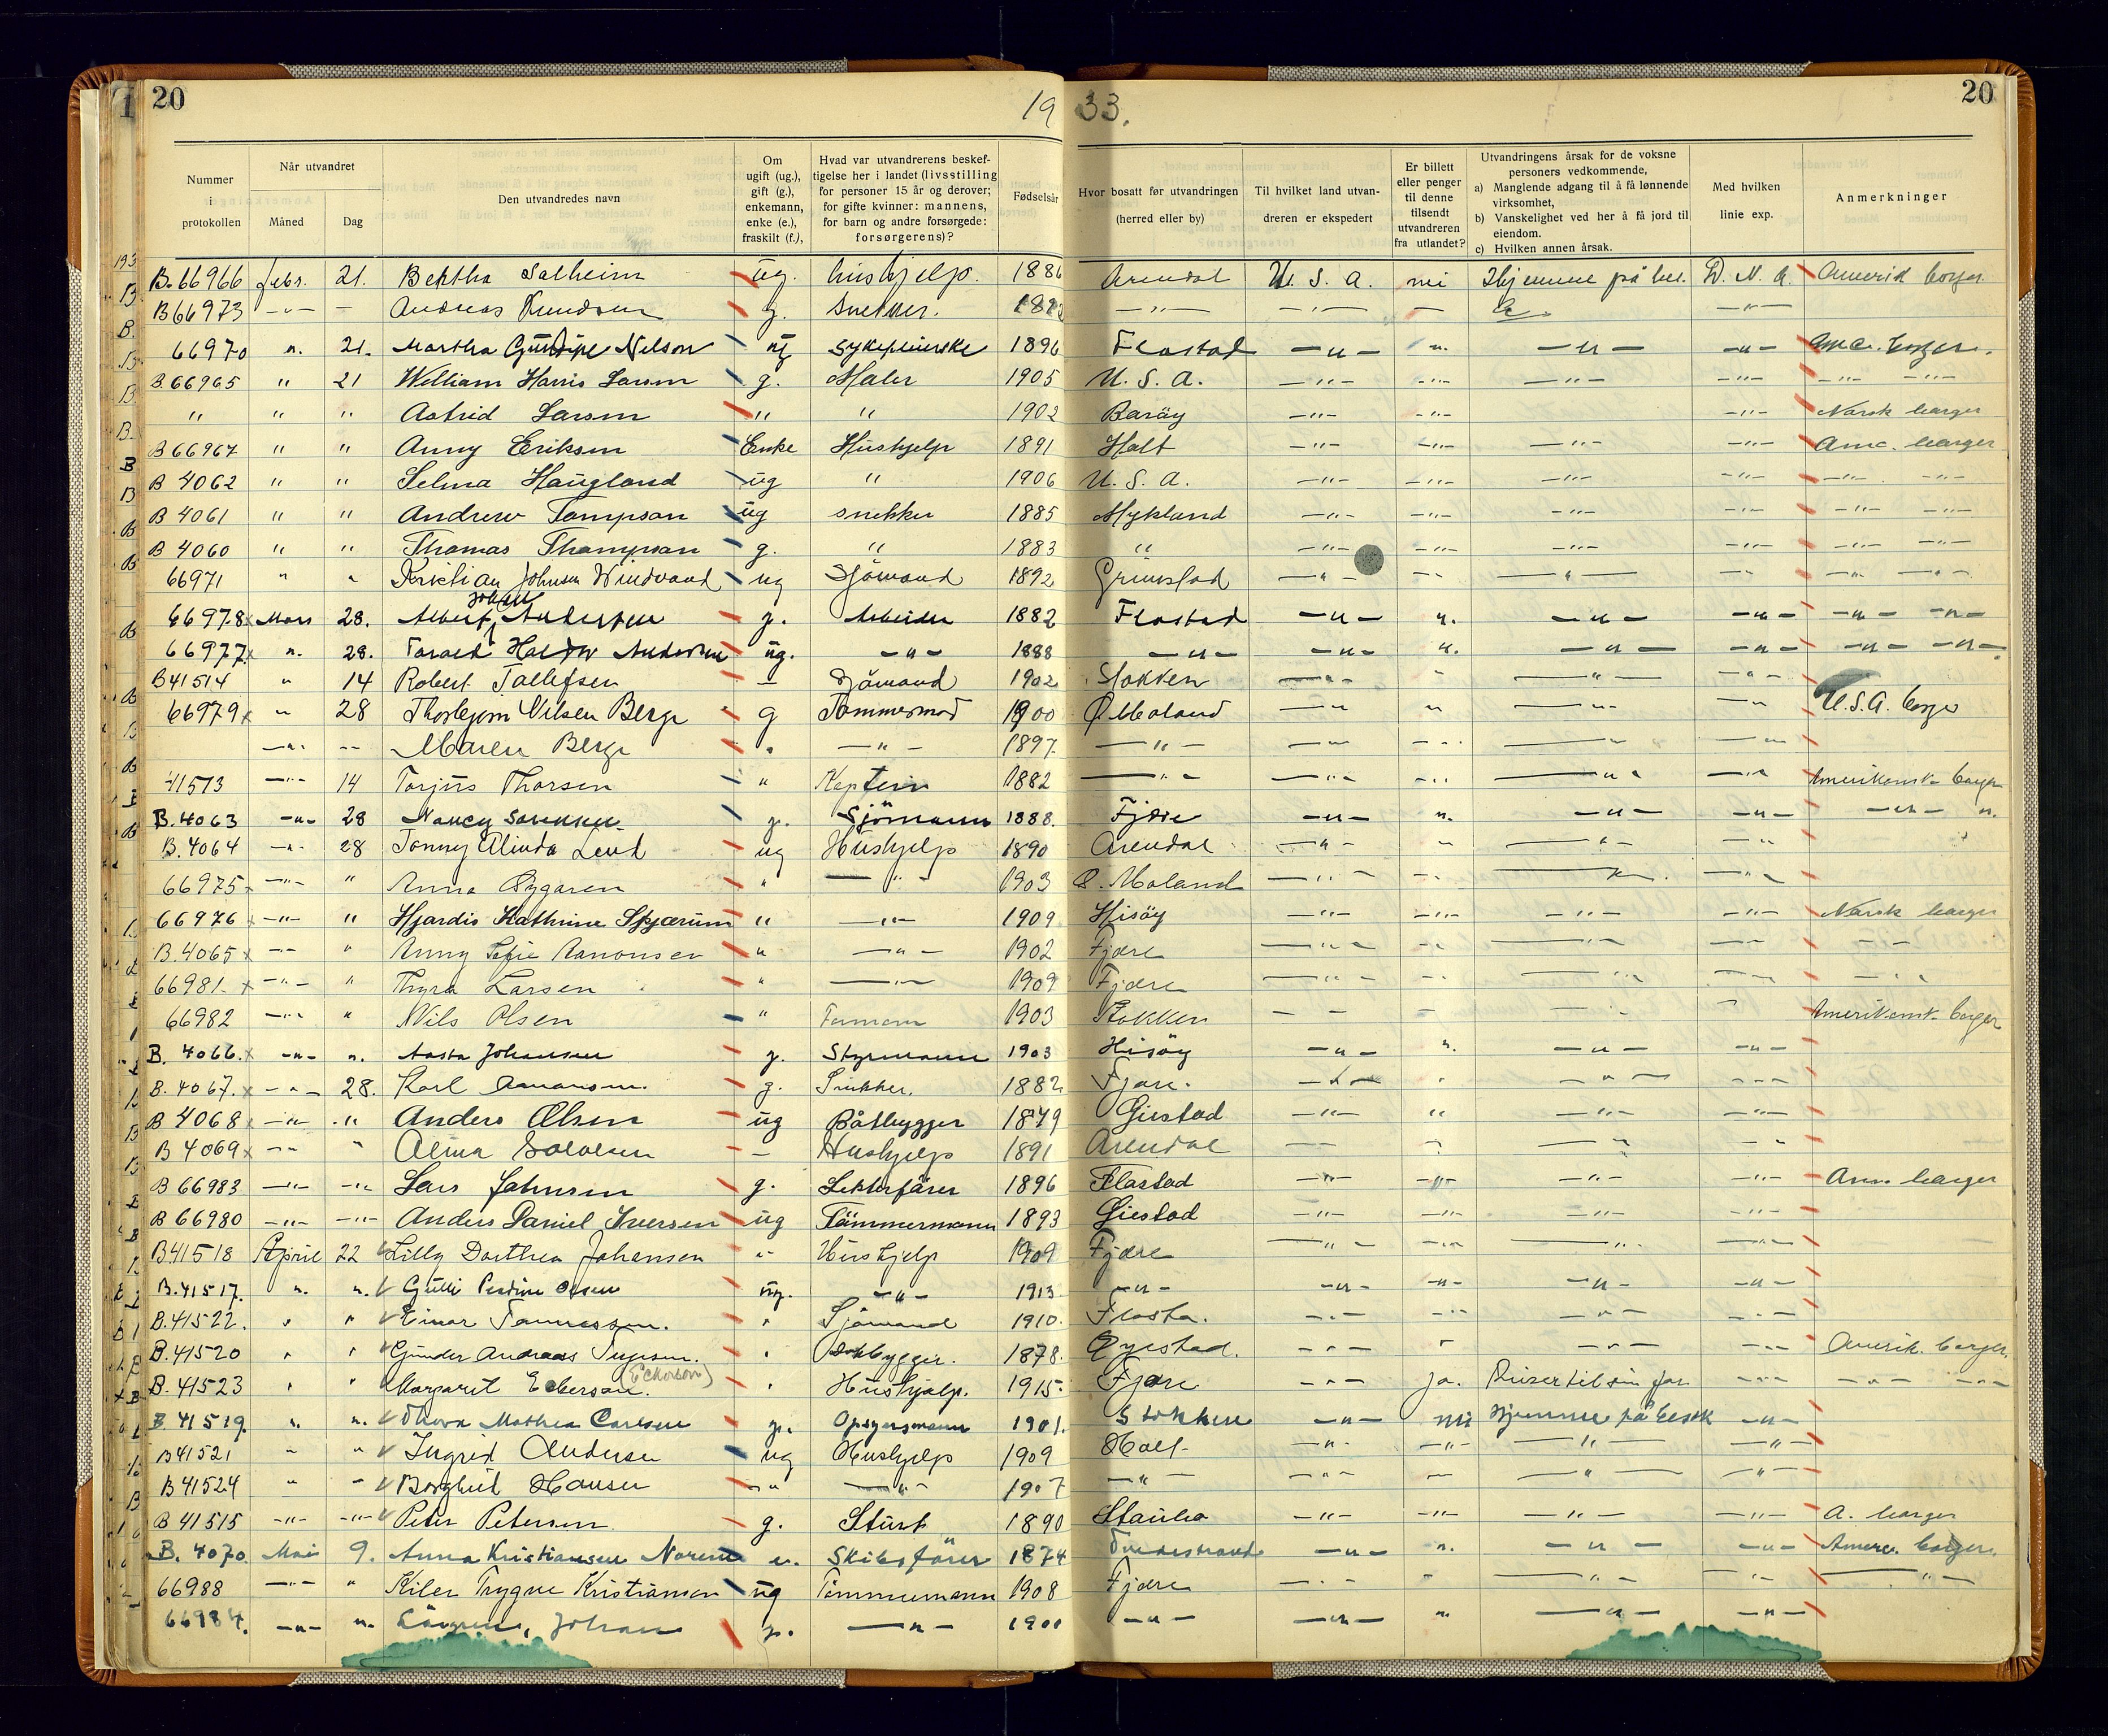 20 1933. 20
Nummer i protokollen | Når utvandret Måned Dag | Den utvandredes navn | Om ugift (ug.), gift (g.), enkemann, enke (e.), fraskilt (f.), | Hvad var utvandrerens beskeftigelse her i landet (livsstilling for personer 15 år og derover; for gifte kvinner: mannens, for barn og andre forsørgede: forsørgerens)? | Fødselsår | Hvor bosatt før utvandringen (herred eller by) | Til hvilket land utvandreren er ekspedert | Er billett eller penger til denne tilsendt utvandreren fra utlandet? | Utvandringens årsak for de voksne personers vedkommende, a) Manglende adgang til å få lønnende virksomhet, b) Vanskelighet ved her å få jord til eiendom. c) Hvilken annen årsak. | Med hvilken linie exp. | Anmerkninger
B. 66966 Febr. 21. Bertha Salheim ug. hushjelp. 1886 Arendal U. S. A. nei Hjemme på bes. D. N. A. Amerik borger
B 66973 -"- - Andreas Knudsen g. Snekker. -"- -"- - -"-
66970 n. 21. Martha Nelson ug Sykepleierske 1896 Flostad -"- n. -"- -"- Ame. borger.
B 66965 " 21 William Harris Larsen g. Maler 1905 U. S. A. -"- -"- -"- -"- -"- -"-
" " " Astrid Larsen " " 1902 Barøy -"- -"- -"- Norsk borger
B 66967 " " Anny Eriksen Enke Hushjelp 1891 Holt -"- -"- -"- -"- Ame. borger
B 4062 " " Selma Haugland ug " 1906 U. S. A. -"- -"- -"- -"- -"- -"-
B 4061 " " Andrew Tompson ug snekker 1885 Mykland -"- -"- -"- -"- -"- -"-
B 4060 " " Thomas Thompson g. " 1883 " -"- -"- -"- -"- -"- -"-
66971 " " Kristian Johnsen Windvand ug Sjömand 1892 Grimstad -"- -"- -"- -"- -"- -"-
66978 x Mars 28. Albert Johan Andersen g. Arbeider 1882 Flostad -"- n. -"- -"- -"- -"-
66977 x n. 28. Andersen ug. -"- 1888 -"- -"- n. -"- -"- -"- -"-
B 41514 " 14 Robert Tallefsen - Sjömand 1902 Stokken -"- " -"- -"-
66979 x " 28 Thorbjørn Nilsen Berge g Tömmermand 1900 Ø Moland -"- " -"- -"- U.S.A. borger
-"- -- Maren Berge " -"- 1897 -"- -"- -"- -"- -"-
41513 -"- 14 Torjus Thorsen " Kaptein 1882 -"- -"- -"- -"- -"- Amerikansk borger
B. 4063 -"- 28 Nancy Sørensen g. Sjömann 1888. Fjære -"- n. -"- -"- -"- n.
B. 4064 -"- 28 Jonny Alinda Lind ug Hushjelp 1890 Arendal -"- " -"- -"-
66975 x -"- " Anna Nygaren " -"- 1903 Ø. Moland -"- -"- -"- -"-
66976 x -"- " Hjørdis Kathrine Skjærum " -"- 1909 Hisøy -"- -"- -"- -"- Norsk borger
B. 4065 x -"- " Anny Sofie Aanonsen " -"- 1902 Fjære -"- " -"- -"- - -
66981 x -"- " Thyra Larsen " -"- 1909 Fjære -"- -"- -"- -"- -"-
66982 -"- " Nils Olsen " Formann 1903 Stokken - - - - - Amerikansk borger
B. 4066. x -"- n. Aasta Johansen g. Styrmann 1903 Hisøy -"- n. -"- -"-
B. 4067. x -"- 28. Karl Aanonsen. g. Snekker. 1882 Fjære. -"- " -"- -"-
B 4068 x -"- " Anders Olsen ug Båtbygger 1879 Øiestad -"- " -"- -"-
B 4069 x -"- " Alma Halvorsen - Hushjelp 1891 Arendal - - -"- -"-
B 66983 -"- -"- Lars Johnsen g. Lekterfører 1896 Flostad -"- -"- -"- -"- Am. borger
B 66980 -"- -"- Anders Daniel Iversen ug Tømmermann 1893 Øiestad -"- -"- -"- -"-
B 41518 April 22 Lilly Dorthea Johansen " Hushjelp 1909 Fjære -"- -"- -"- -"-
B. 41517. n. n. Gulli Olsen ug. -"- 1913 -"- -"- -"- -"- -"-
B. 41522. " " Einar Tønnessen. " Sjömand 1910. Flosta. -"- -"- -"- -"-
B. 41520 " " Gunder Andreas " 1878. Øyestad. -"- " -"- -"- Amerik. borger.
B. 41523 " " Margarit Eckerson. (Eckerson) " Hushjelp. 1915. Fjære -"- ja. Reiser til sin far -"- -"- -"-
B 41519. n. n. Thora Mathea Carlsen g. Opsynsmann 1901. Stokken -"- nei Hjemme på besøk -"-
B 41521 " " Ingrid Andersen ug Hushjelp 1909 Holt -"- -"- -"- -"-
B 41524 " " Borghild Hansen -"- -"- 1907 -"- -"- - -"- -"-
B 41515 -"- -"- Peter Petersen g. Stuert 1890 -"- -"- -"- -"- A. borger
B. 4070. Mai 9. Anna Kristiansen Noren e. Skibsfører 1874 Tvedestrand -"- n. -"- -"- Amerik. borger.
66988 -"- " Trygve Kristiansen ug Tømmermann 1908 Fjære -"- " -"- -"- -"-
66984. -"- n. Johan g. -"- 1900 -"- -"- n. -"- -"-